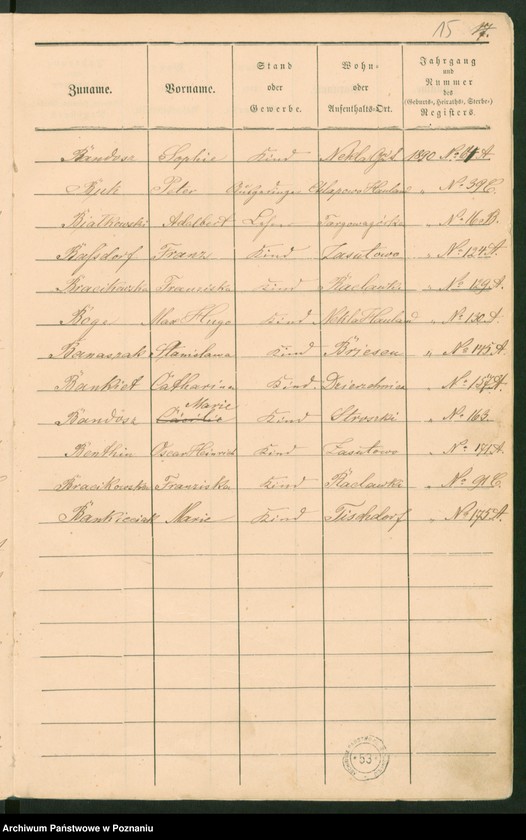 15 17.
Zuname. Vorname. Stand oder Gewerbe. Wohn- oder Aufenthalts-Ort. Jahrgang und Nummer des (Geburts-, Heiraths-, Sterbe-) Registers
Bandosz Sophie Kind Nekla Gut 1890 A.
Peter Hauland " No 39 C.
Bialkowski Adelbert " No 16 B.
Bassdorf Franz Kind Zasutowo " No 124 A.
Bracikowska Franciska Kind Raclawki " No 129 A.
Böge Max Hugo Kind Nekla Hauland " No 130 A.
Banaszak Stanislawa Kind Briesen " No 145 A.
Bankiet Catharina Kind. Dzierzchnica " No 157 A.
Marie
Bandosz Cäcilie Kind Stroszki " No 163
Benthin Oscar Heinrich Kind Zasutowo " No 171 A.
Bracikowska Franziska Kind Raclawki " No 91 C.
Marie Kind Tischdorf " No 175 A.
53
Archiwum Państwowe w Poznaniu